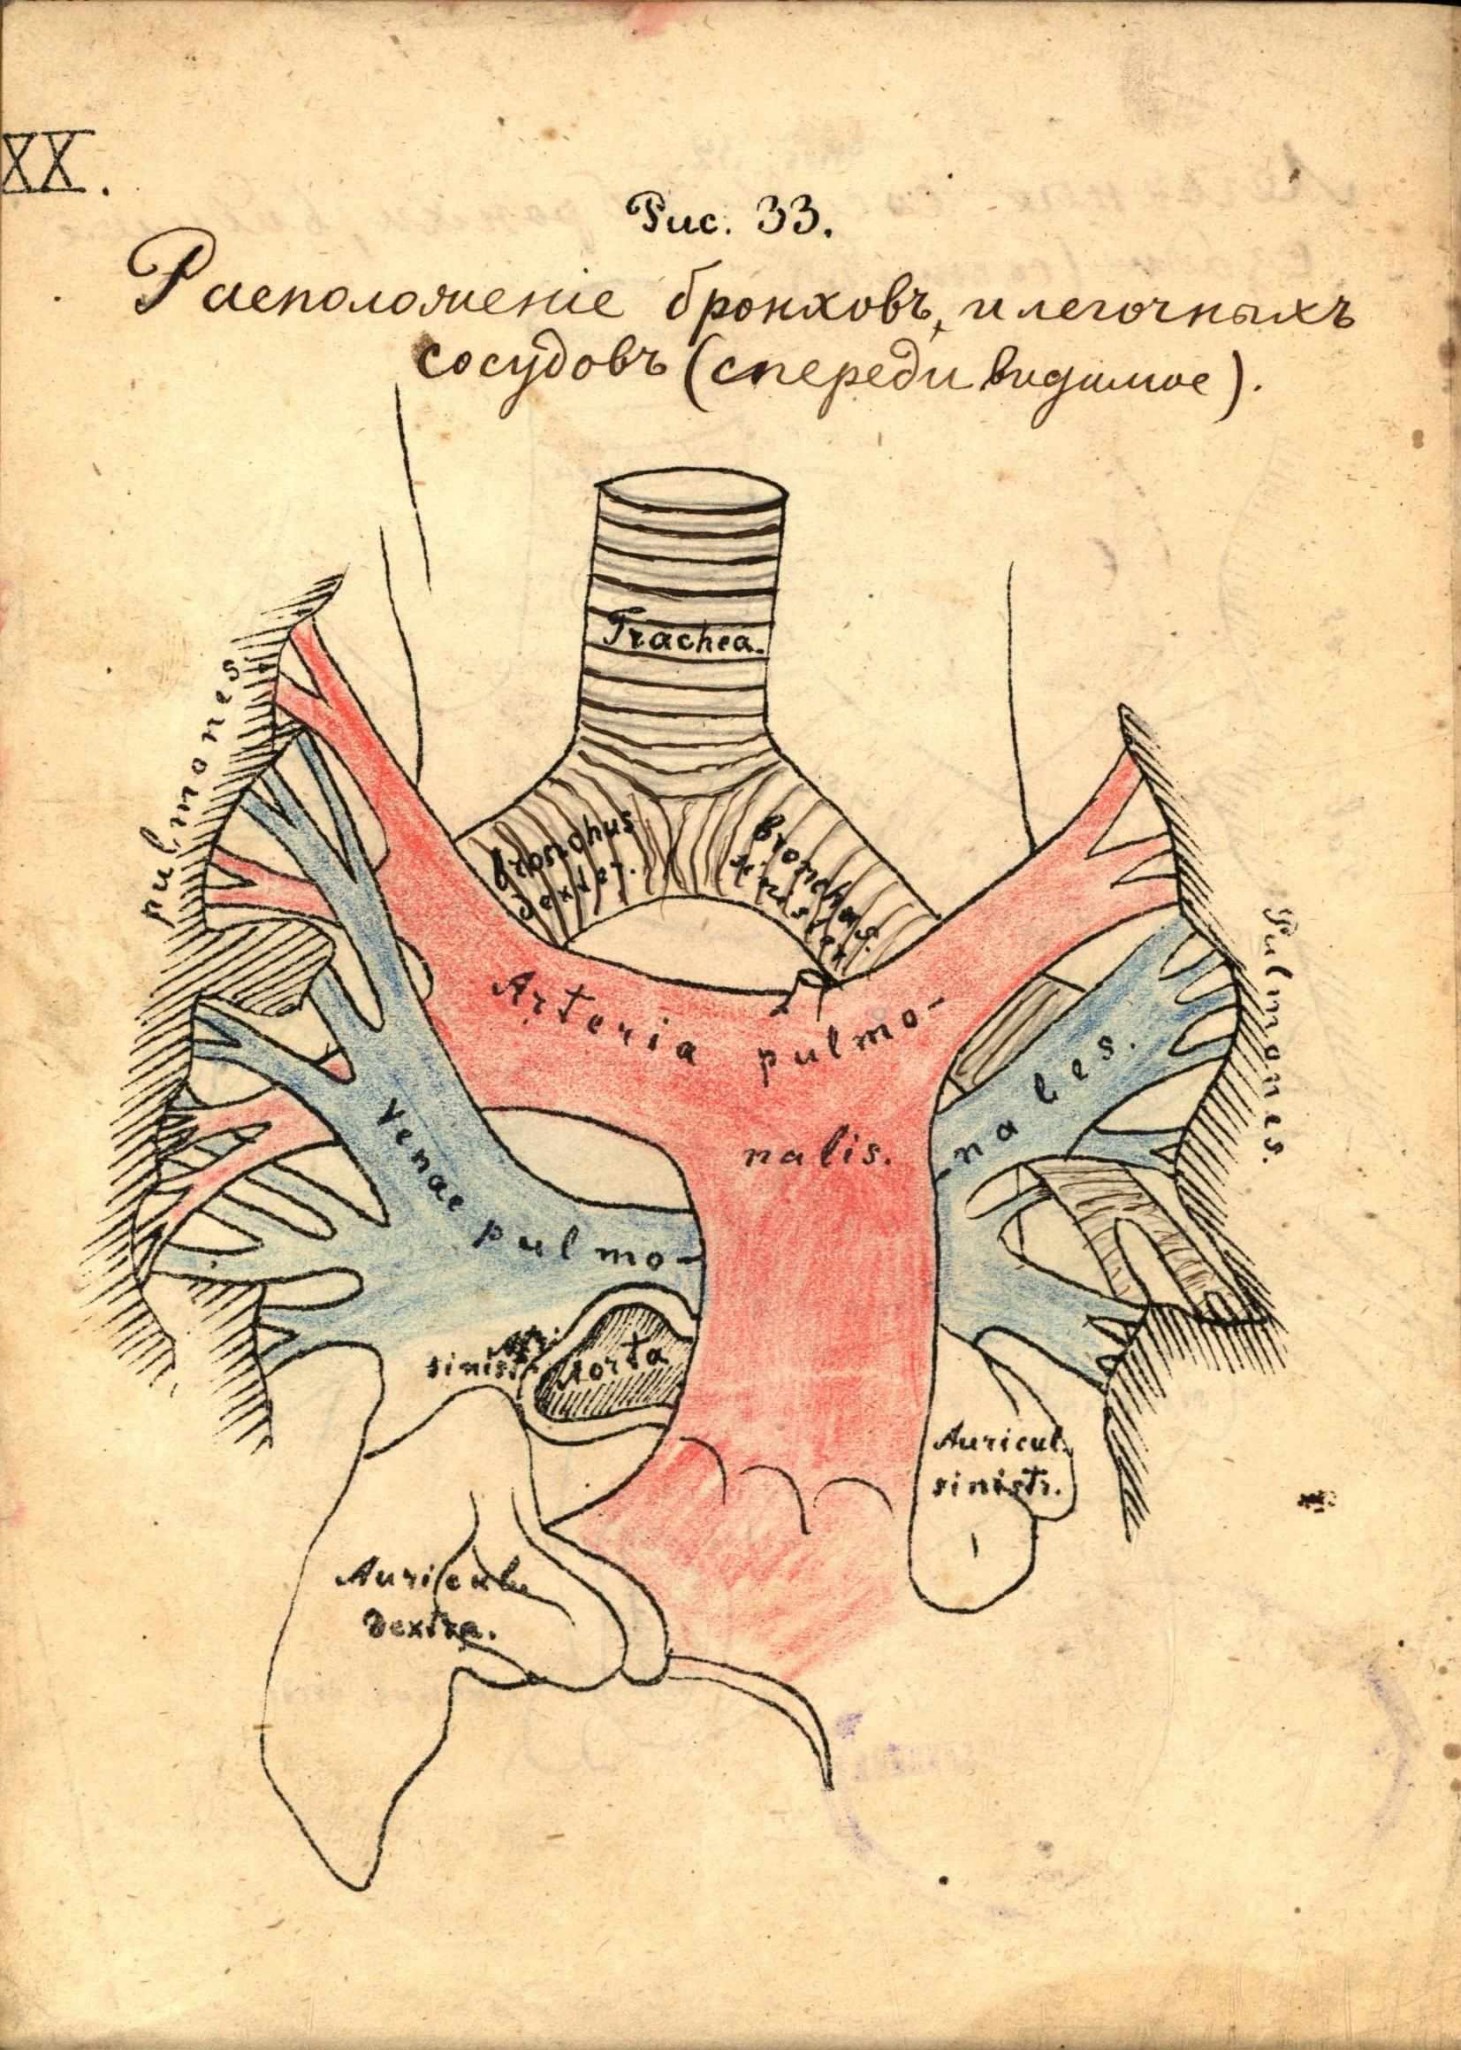 XX.
Рис. 33.
Расположеніе бронховъ, и легочныхъ
сосудовъ (спереди видимое).
Trachea.
pulmones
bronchus
dexter.
bronchus
sinister.
Pulmones.
Arteria pulmo-
nalis.
Venae pulmo-
-nales.
sinistr.
Aorta
Auricul.
sinistr.
Auricul.
dextra.